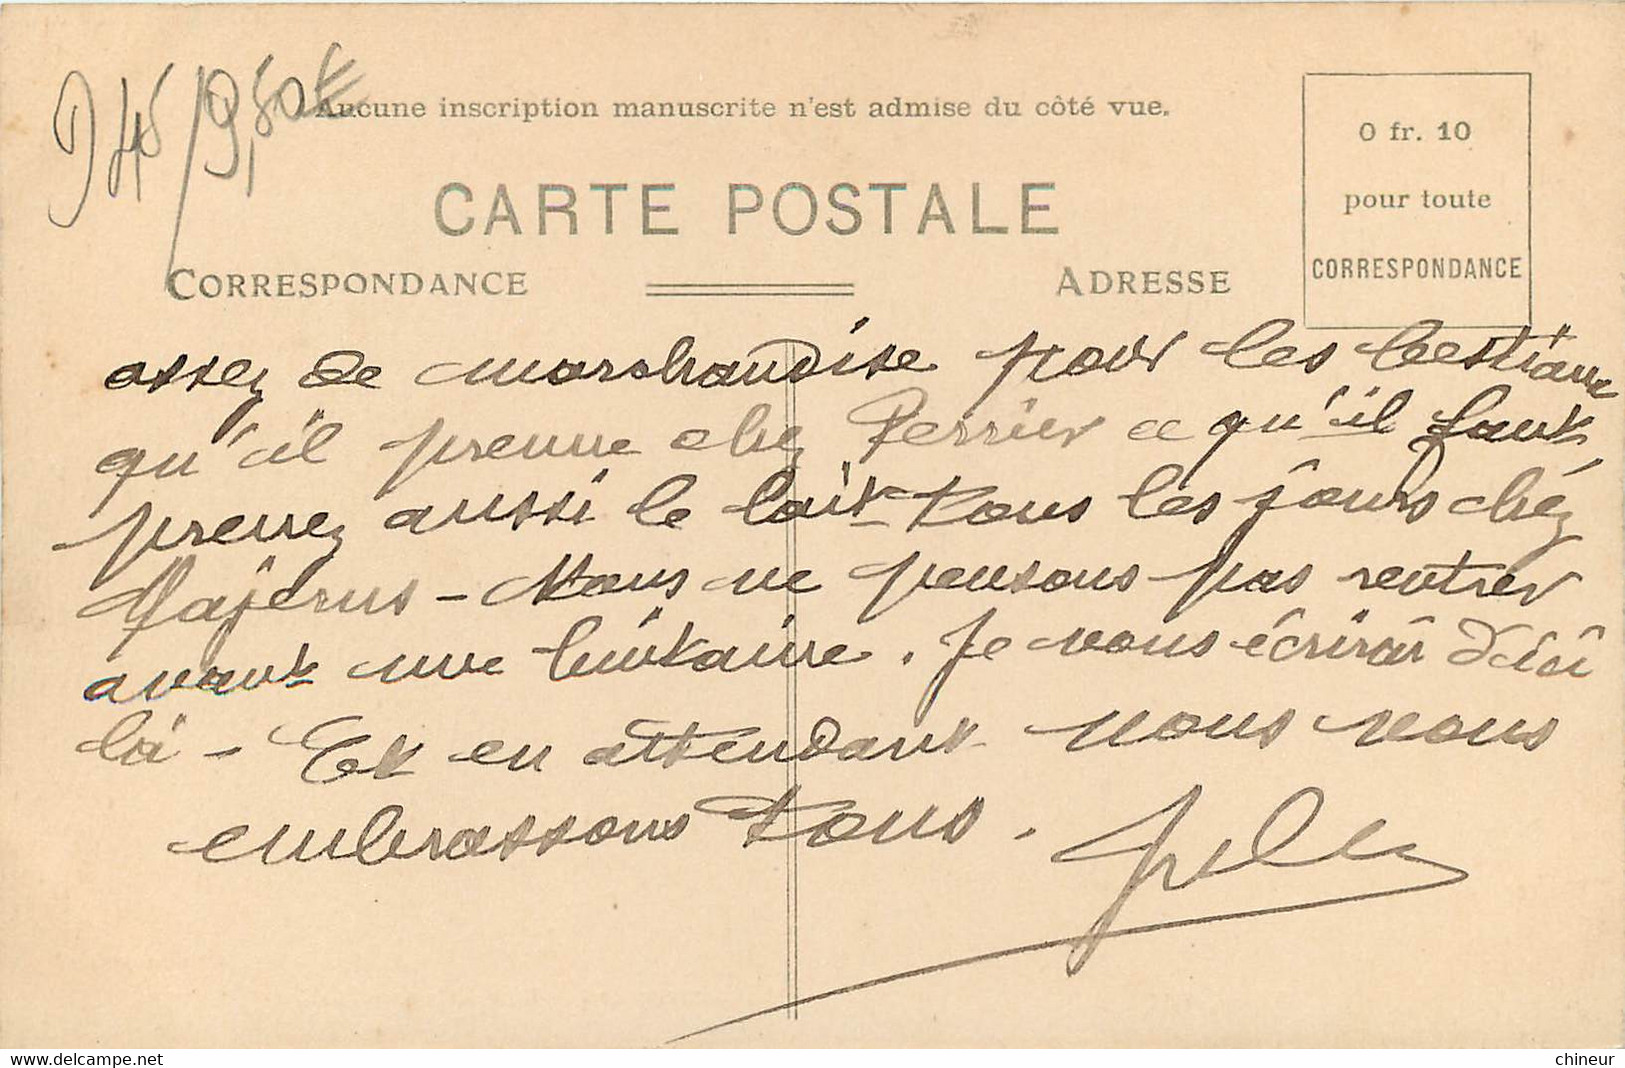 D 45 / 9,50€
Aucune inscription manuscrite n'est admise du côté vue.
CARTE POSTALE
CORRESPONDANCE
ADRESSE
0 fr. 10
pour toute
CORRESPONDANCE
assez de marchandise pour les bestiaux
qu'il prenne chez Perrier ce qu'il faut,
prenez aussi le lait tous les jours chéz
Majérus - Nous ne pensons pas rentrer
avant une huitaine. Je vous écrirai d'ici
là - Et en attendant nous vous
embrassons tous.
delcampe.net
chineur